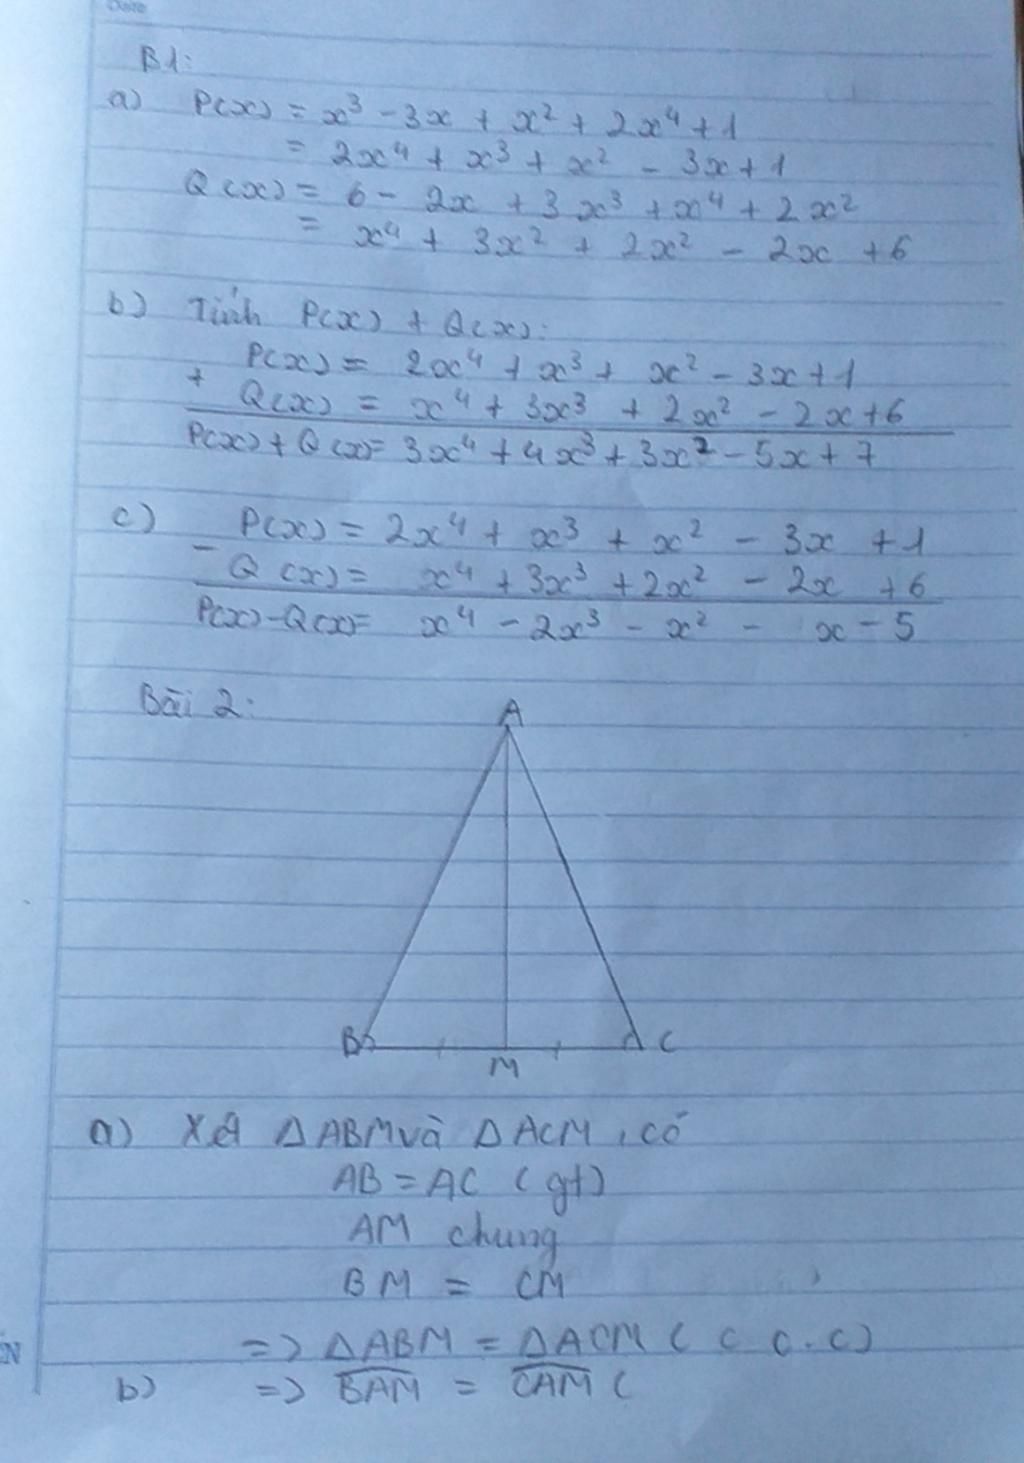 Date
B1:
a) P(x) = x³ - 3x + x² + 2x⁴ + 1
= 2x⁴ + x³ + x² - 3x + 1
Q(x) = 6 - 2x + 3x³ + x⁴ + 2x²
= x⁴ + 3x² + 2x² - 2x + 6
b) Tính P(x) + Q(x):
P(x) = 2x⁴ + x³ + x² - 3x + 1
+ Q(x) = x⁴ + 3x³ + 2x² - 2x + 6
P(x) + Q(x) = 3x⁴ + 4x³ + 3x² - 5x + 7
c) P(x) = 2x⁴ + x³ + x² - 3x + 1
- Q(x) = x⁴ + 3x³ + 2x² - 2x + 6
P(x) - Q(x) = x⁴ - 2x³ - x² - x - 5
Bài 2:
A
B C
M
a) Xét ΔABM và ΔACM, có
AB = AC (gt)
AM chung
BM = CM
=> ΔABM = ΔACM (c c.c)
b) => BAM = CAM (